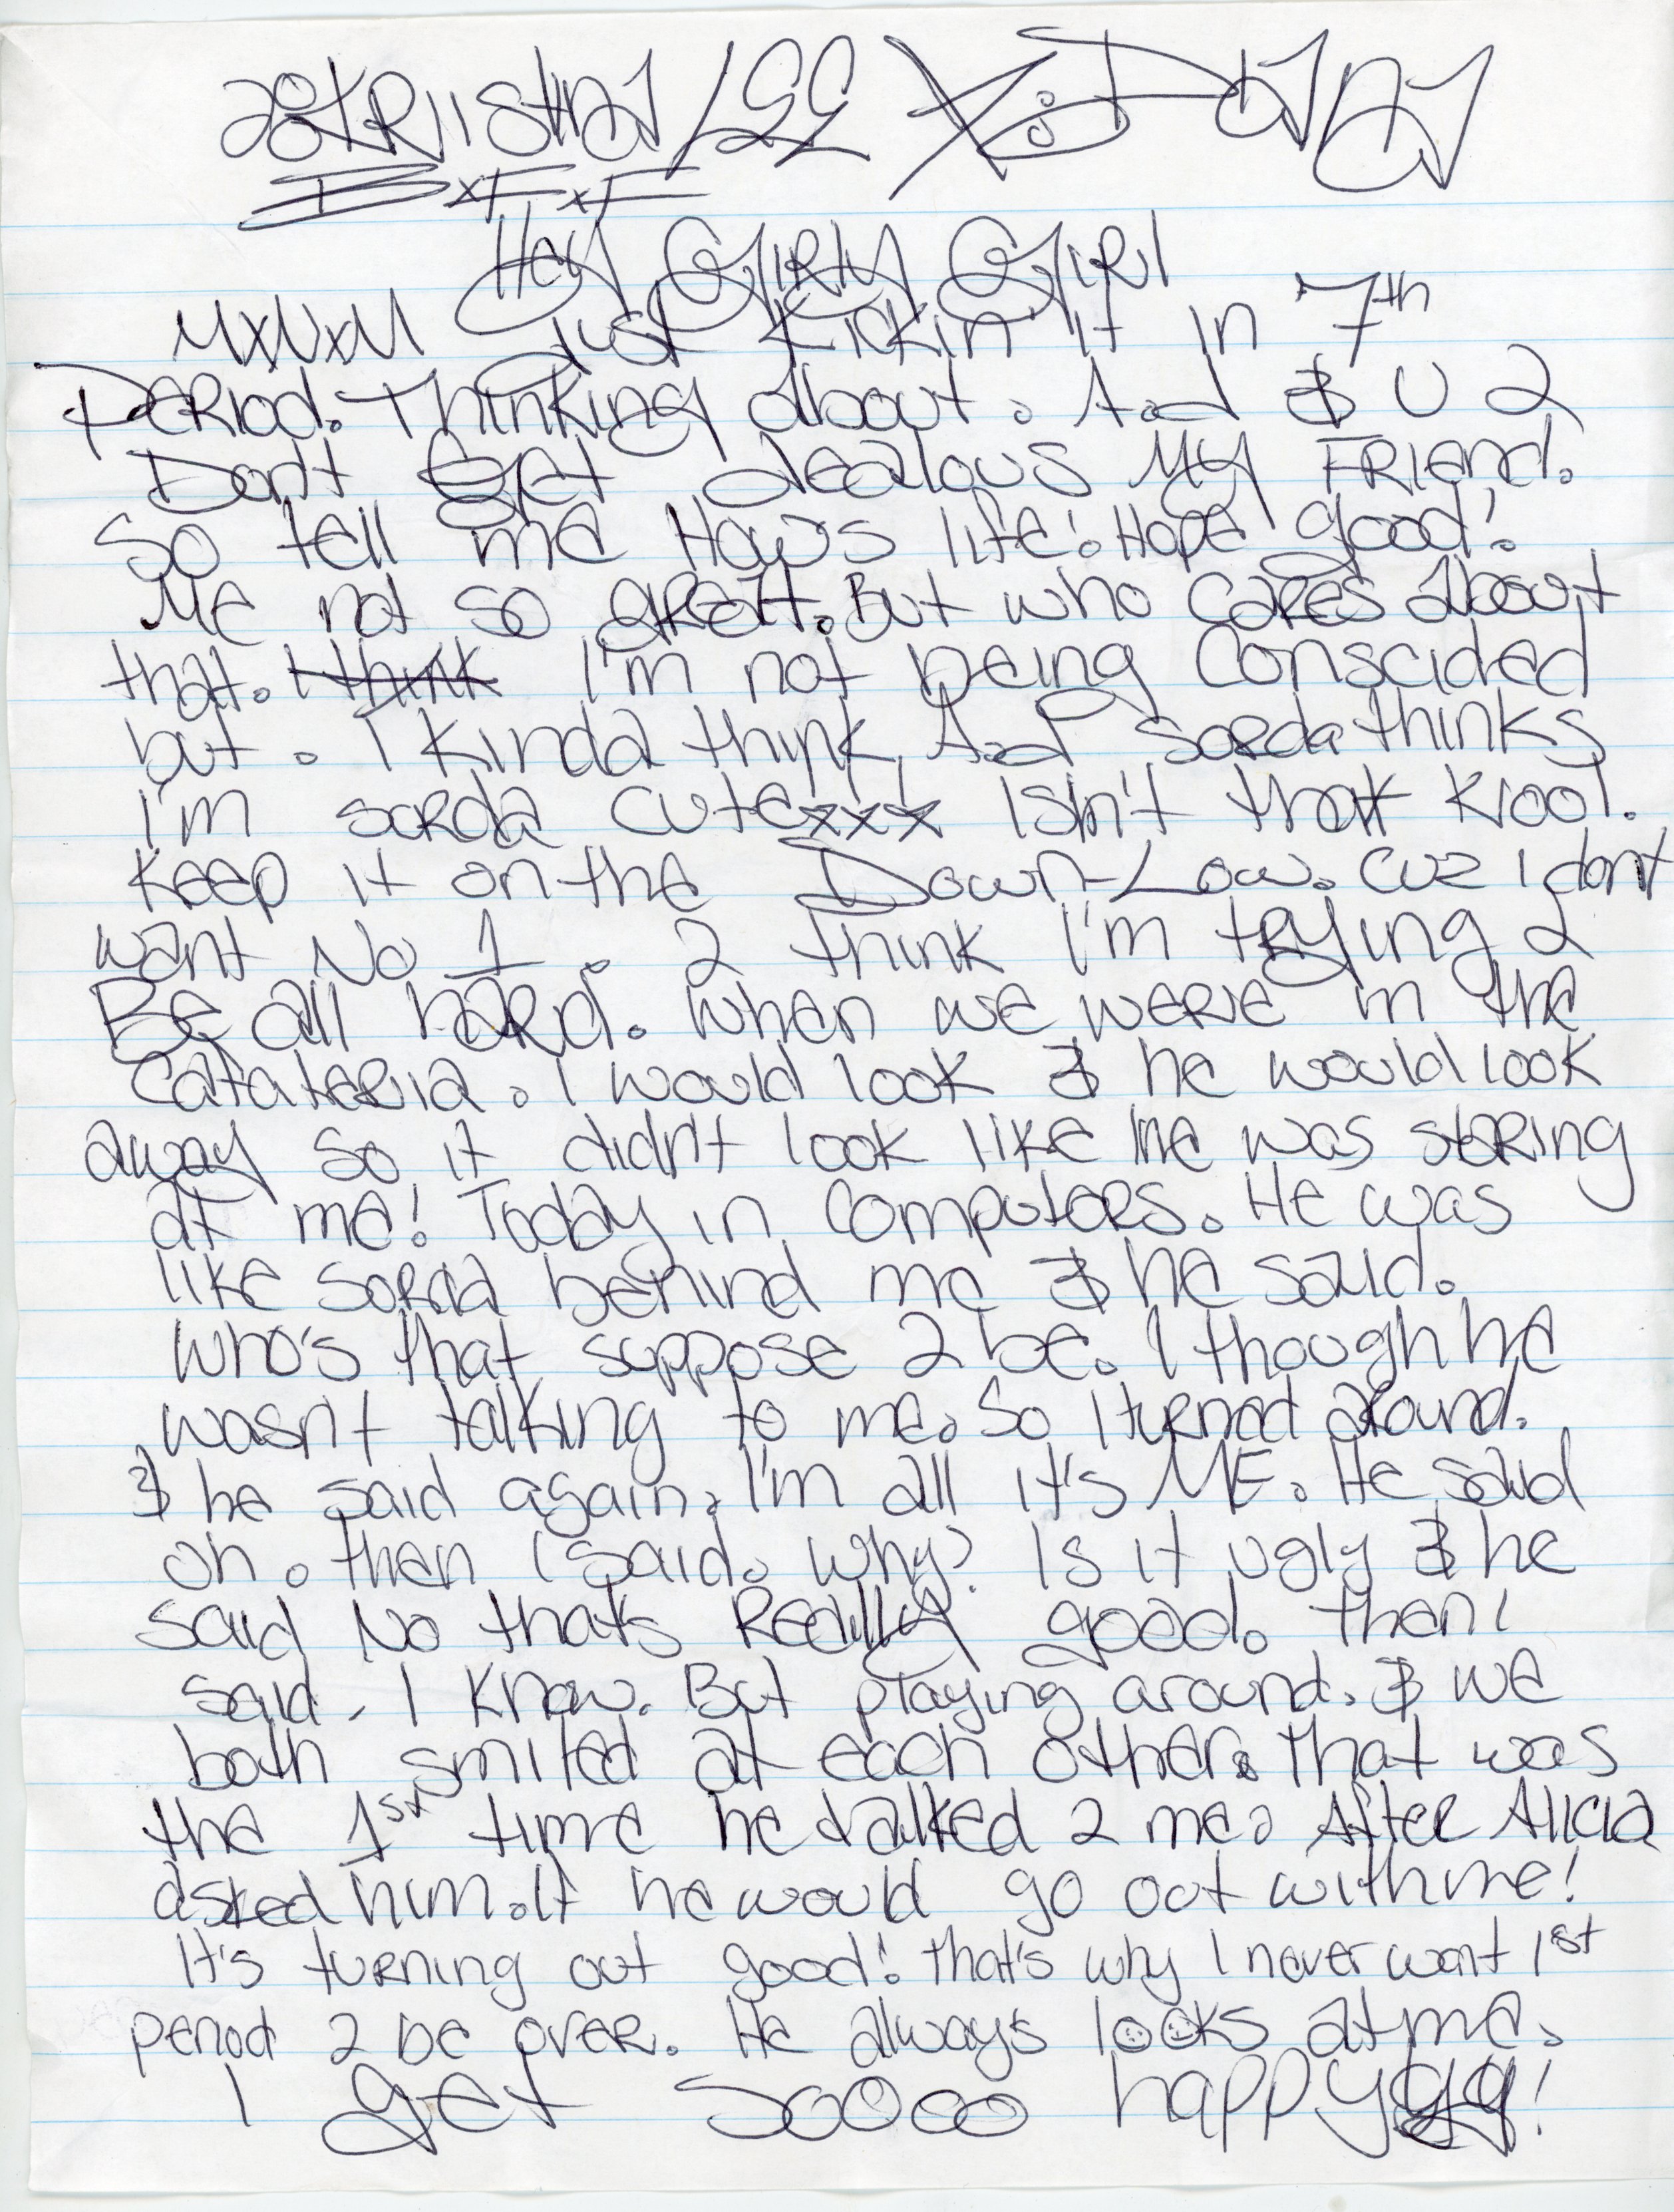 KRiistiNA LEE
BxFxF
Hey Girly Girl
MxNxM Just Kickin' it in 7th
Period. Thinking about. A.d & U 2
Dont Get Jealous My Friend.
So tell me How's life! Hope good!
Me not so great. But who cares about
that. I think I'm not being Conscided
but. I kinda think A.d sorda thinks
I'm sorda cutexxx Isn't that Kool.
Keep it on the Down-Low. cuz I dont
want No 1. 2 think I'm trying 2
Be all hard. When we were in the
Cafateria. I would look & he would look
away so it didn't look like he was staring
at me! Today in Computers. He was
like sorda behind me & he said.
who's that suppose 2 be. I though he
wasn't talking to me. So I turned around.
& he said again. I'm all it's ME. He said
oh. then I said. Why? Is it ugly & he
said No thats Really good. then I
said. I know. But playing around. & we
both smiled at each other. That was
the 1st time he talked 2 me. After Alicia
asked him. if he would go out with me!
It's turning out good! that's why I never want 1st
period 2 be over. He always looks at me.
I get soOooo happyyyy!